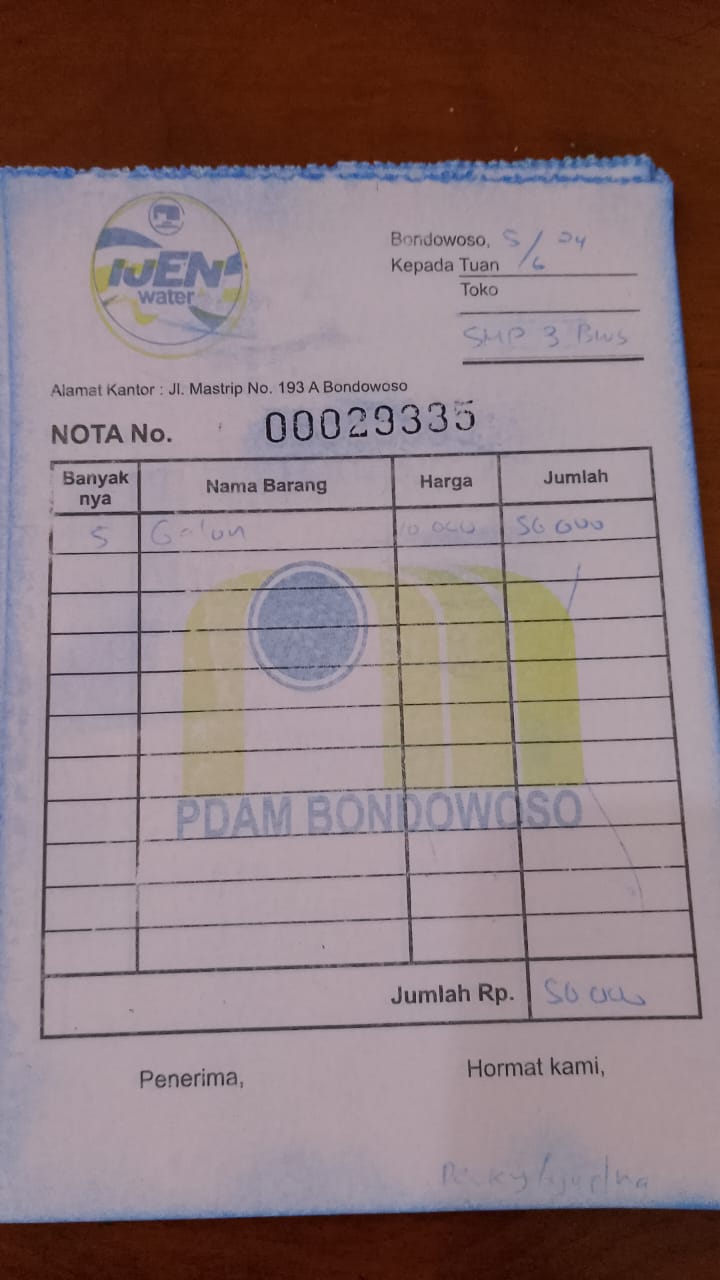 IJEN
water
Bondowoso, 5/6 24
Kepada Tuan
Toko
SMP 3 Bws
Alamat Kantor : Jl. Mastrip No. 193 A Bondowoso
NOTA No. 00029335
Banyak nya Nama Barang Harga Jumlah
5 Galon 10 000 50 000
PDAM BONDOWOSO
Jumlah Rp. 50 000
Penerima, Hormat kami,